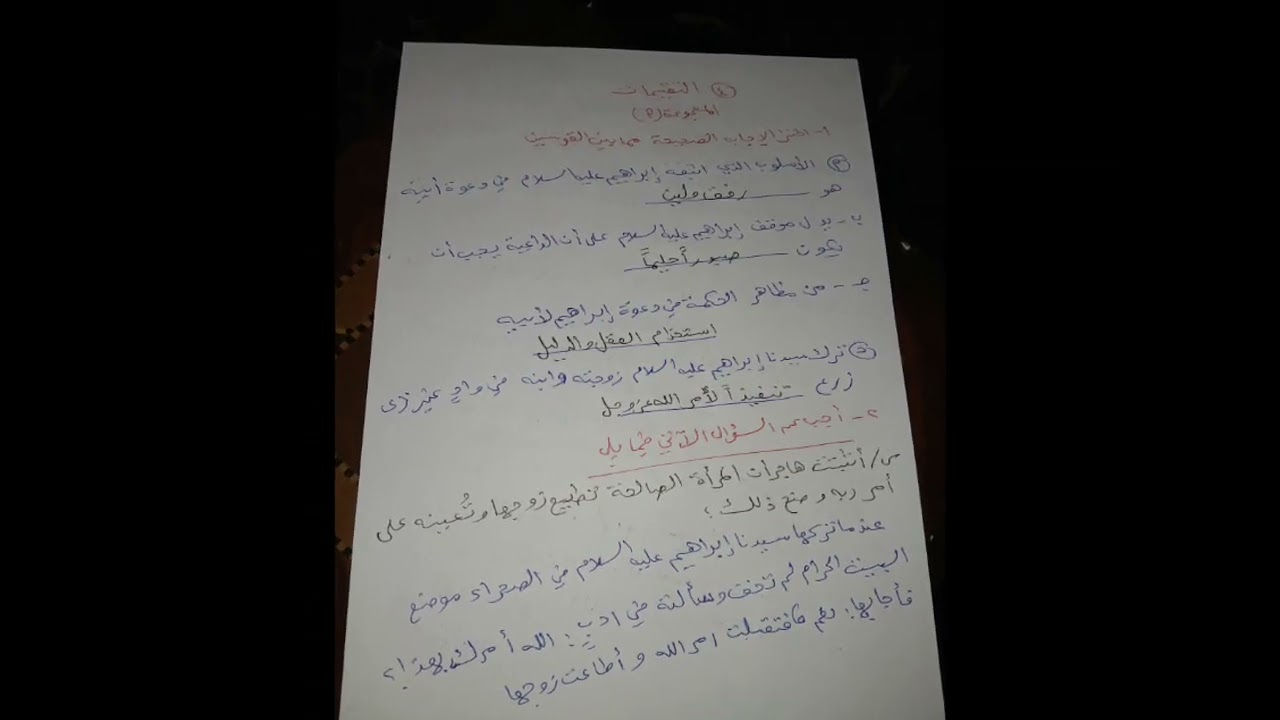 ④ التقييمات
المجموعة (P)
١- اختر الإجابة الصحيحة مما بين القوسين
الأسلوب الذي اتبعه إبراهيم عليه السلام في دعوة أبيه
هو رفق ولين
ب - يدل موقف إبراهيم عليه السلام على أن الداعية يجب أن
يكون صبوراً حليماً
جـ - من مظاهر الحكمة في دعوة إبراهيم لأبيه
استخدام العقل والدليل
ترك سيدنا إبراهيم عليه السلام زوجته وابنه في وادٍ غير ذى
زرع تنفيذاً لأمر الله عز وجل
٢- أجب عن السؤال الآتي فيما يلي
س/ أثبتت هاجر أن المرأة الصالحة تطيع زوجها وتُعينه على
أمر ربه وضح ذلك؟
عندما تركها سيدنا إبراهيم عليه السلام في الصحراء موضع
البيت الحرام لم تخف وسألته في ادبٍ: الله أمرك بهذا؟
فأجابها: نعم فتقبلت امر الله وأطاعت زوجها